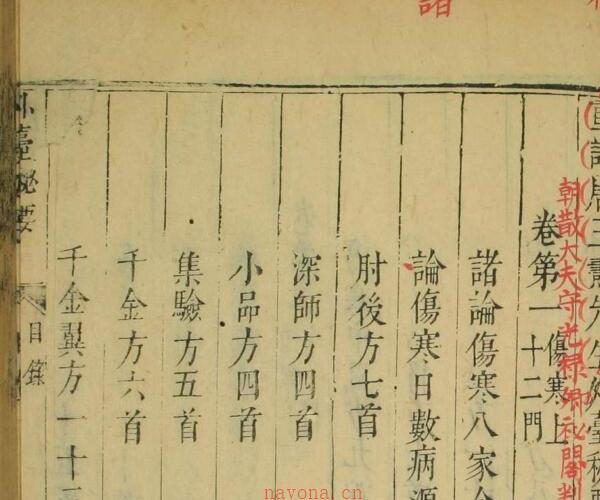 諸
重訂唐王燾先生外臺秘要
朝散大夫守光祿卿秘閣判
卷第一 傷寒上 十二門
諸論傷寒八家
論傷寒日數病源
肘後方七首
深師方四首
小品方四首
集驗方五首
千金方六首
千金翼方一十
外臺秘要 目錄
navona.cn